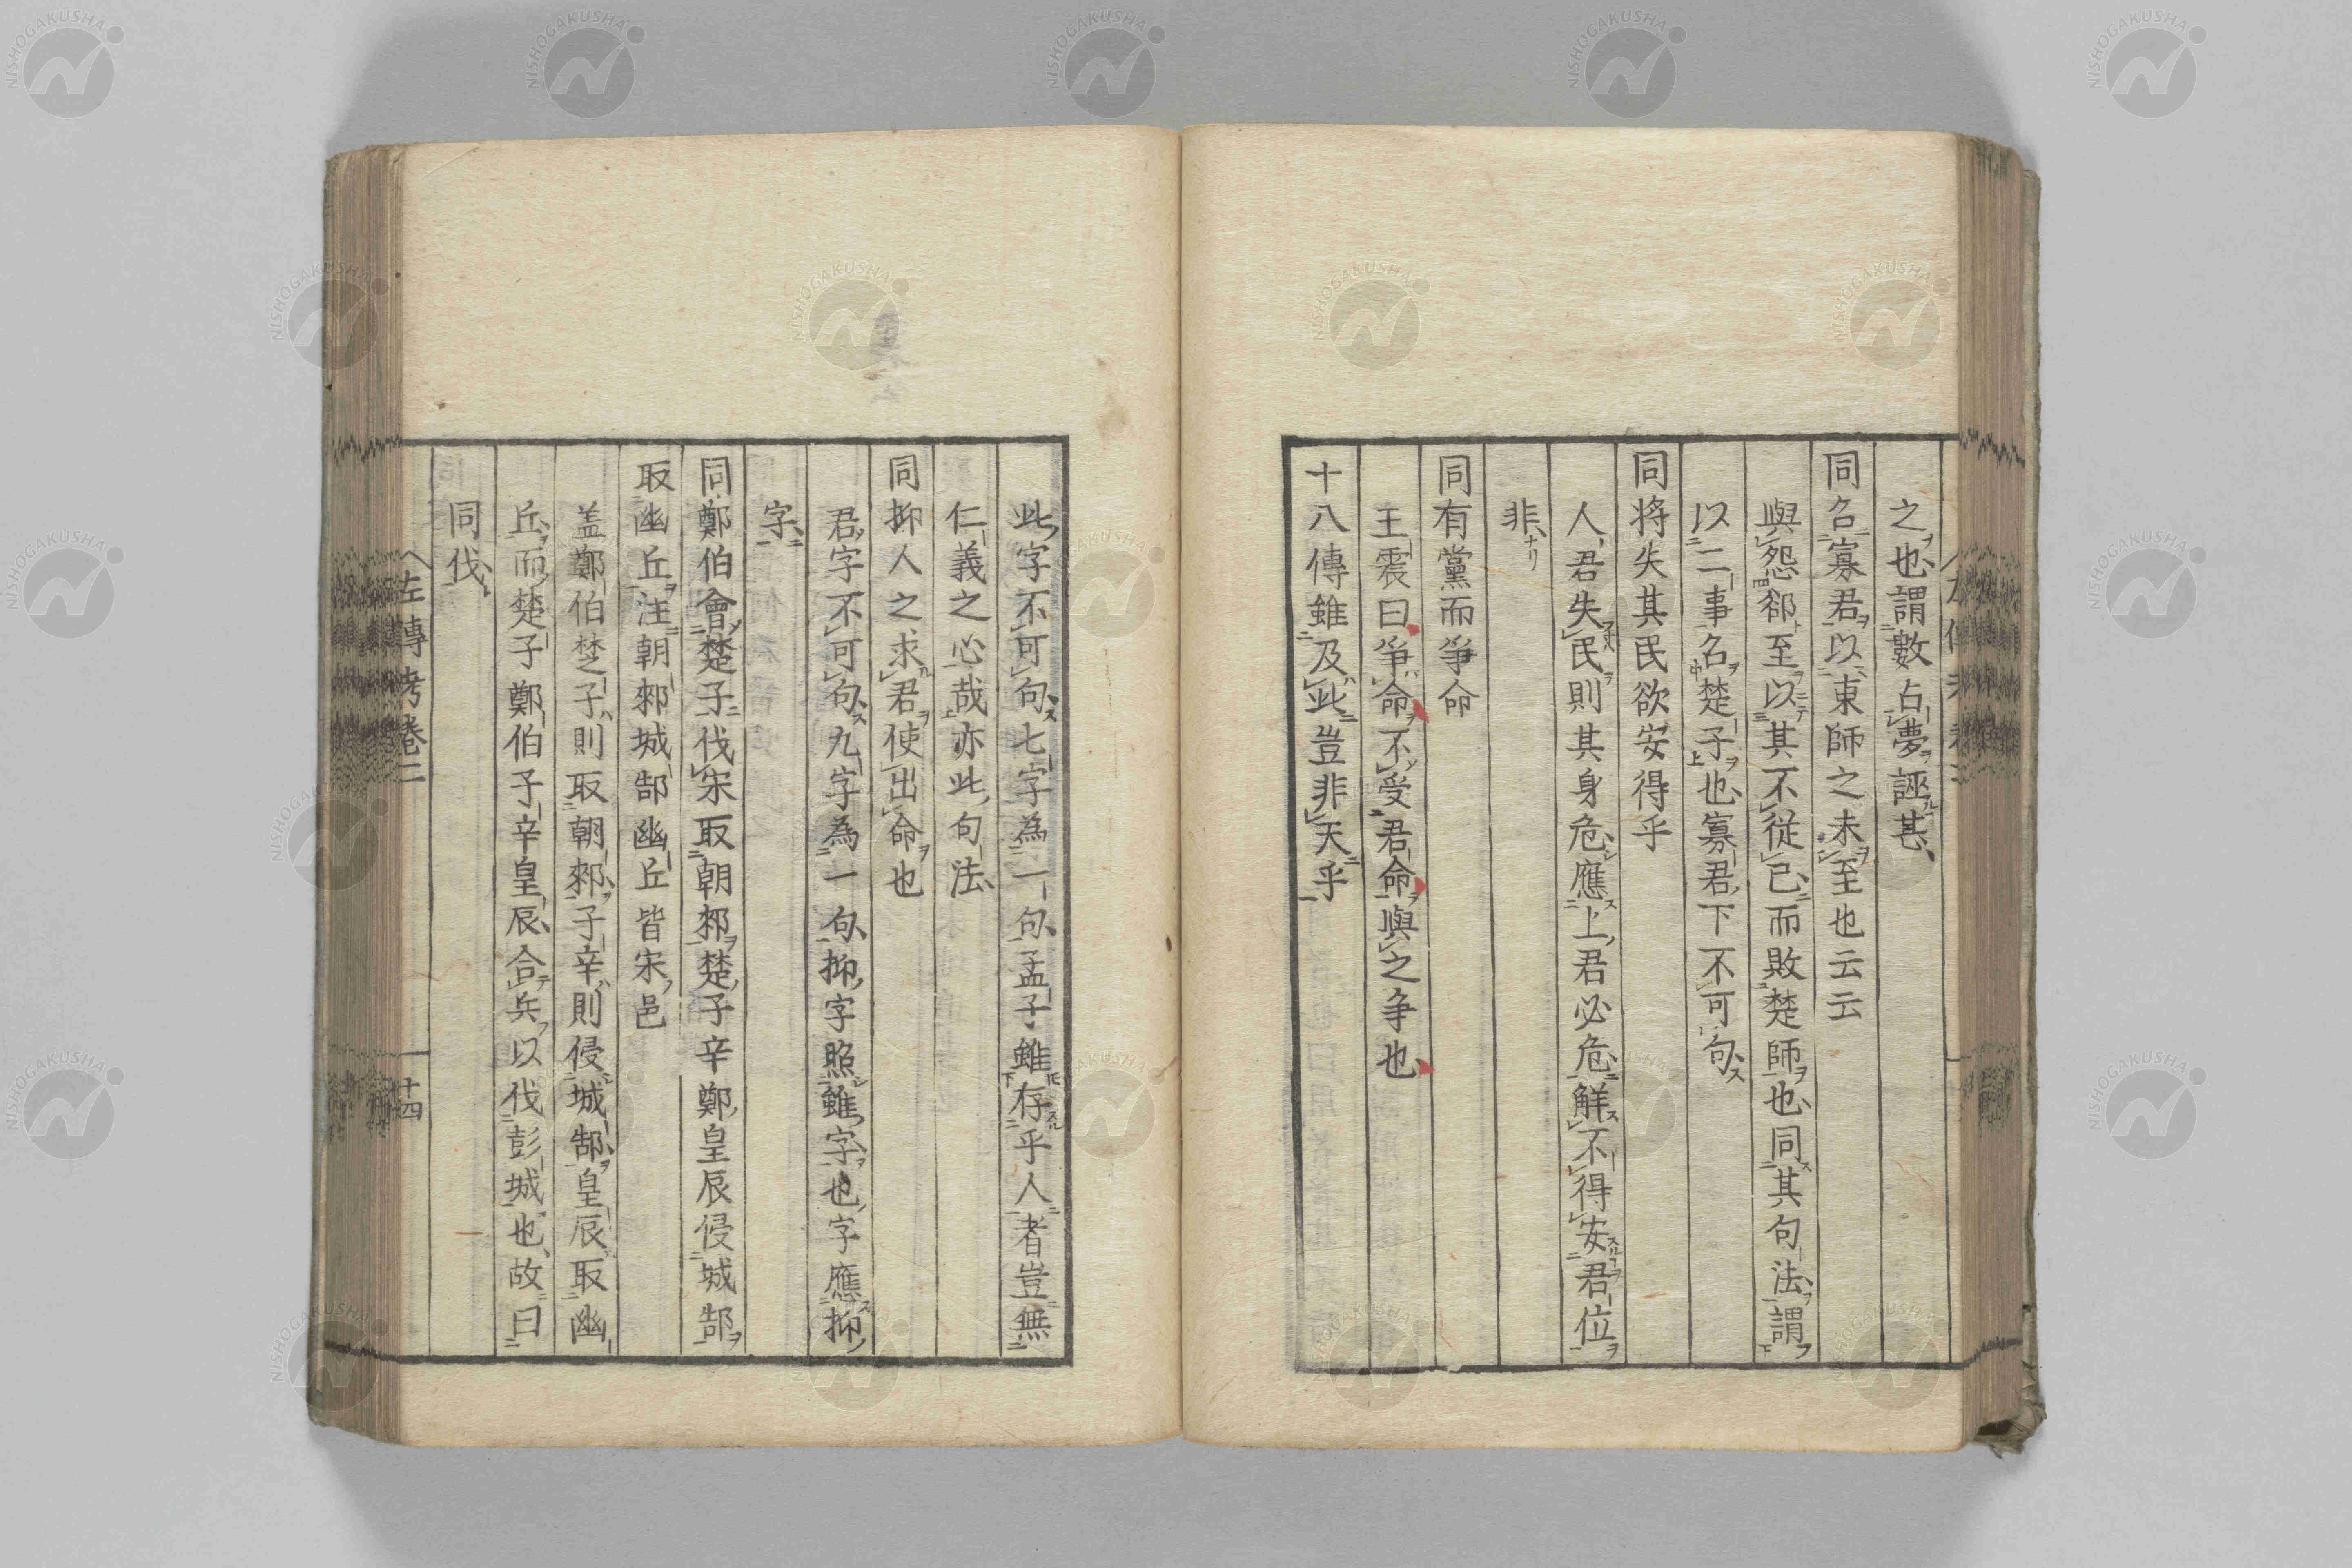 之也謂數占夢誣甚
同召寡君以東師之未至也云云
與怨郤至以其不從已而敗楚師也同其句法謂
以二事名楚子也寡君下不可句
同将失其民欲安得乎
人君失民則其身危應上君必危解不得安君位
非ナリ
同有黨而爭命
王震曰爭命不受君命與之争也
十八傳雖及此豈非天乎
此字不可句七字為一句孟子雖存乎人者豈無
仁義之必哉亦此句法
同抑人之求君使出命也
君字不可句九字為一句抑字照雖字也字應抑
字
同鄭伯會楚子伐宋取朝郟楚子辛鄭皇辰侵城郜
取幽丘注朝郟城郜幽丘皆宋邑
盖鄭伯楚子則取朝郟子辛則侵城郜皇辰取幽
丘而楚子鄭伯子辛皇辰合兵以伐彭城也故曰
同伐
左傳考卷二
十四
NISHOGAKUSHA